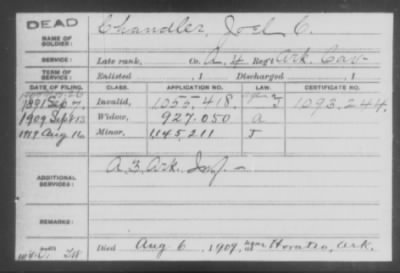 DEAD
NAME OF SOLDIER: Chandler, Joel C.
SERVICE: Late rank, Co. A, 4 Reg't Ark. Cav.
TERM OF SERVICE: Enlisted , 1 Discharged , 1
DATE OF FILING. CLASS. APPLICATION NO. LAW. CERTIFICATE NO.
1891 Sep 7. Invalid, 1055.418. J 1093.244.
1909 Sept 13 Widow, 927.050 a
1919 Aug 16 Minor, 1145.211 J
ADDITIONAL SERVICES: A. 3. Ark. Inf.
REMARKS:
Died Aug 6, 1909, Horatio, Ark.